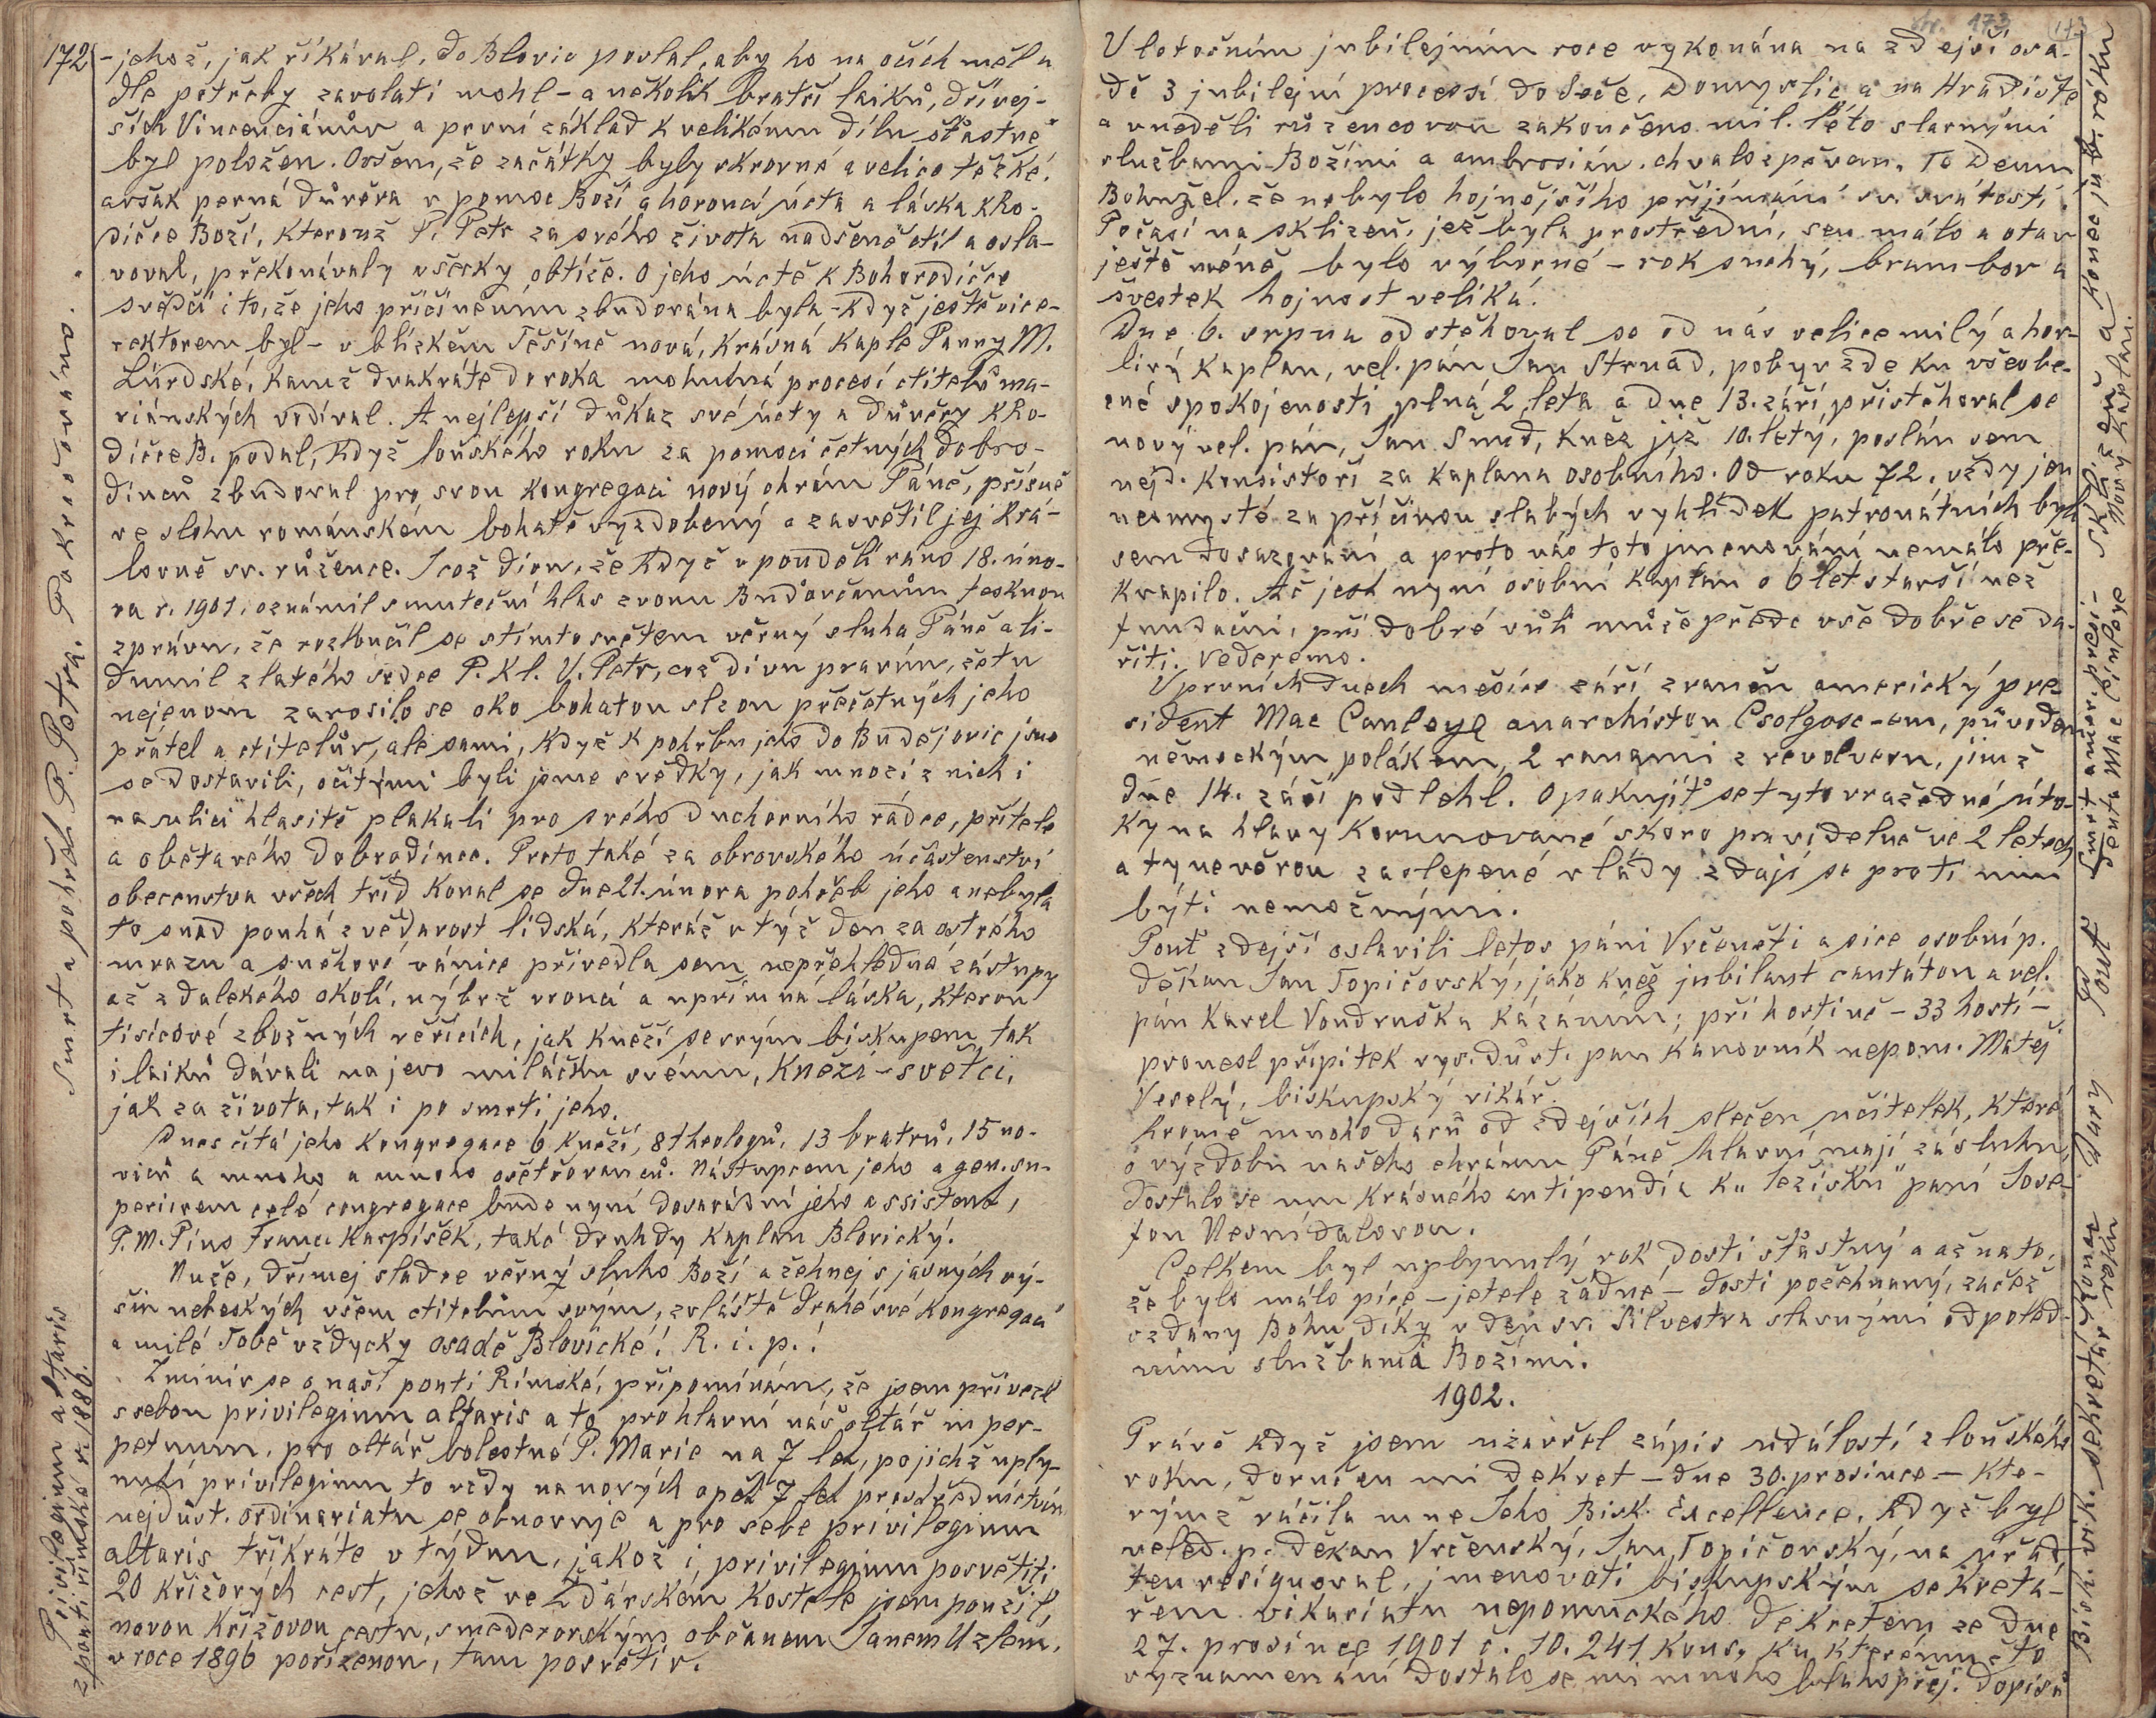 172
- jehož, jak říkával, do Blovic poslal, aby ho na očích měl a
dle potřeby zavolati mohl - a několik bratří laiků, dřívej-
ších Vincenciánův a první základ k velikému dílu šťastně
byl položen. Ovšem, že začátky byly skrovné a velice těžké,
avšak pevná důvěra v pomoc Boží a horoucí úcta a láska k Ro-
dičce Boží, kterouž P. Petr za svého života nadšeně ctil a osla-
voval, překonávaly všecky obtíže. O jeho úctě k Bohorodičce
svědčí i to, že jeho přičiněním zbudována byla - když ještě vice-
rektorem byl - v blízkém Těšíně nová, krásná kaple Panny M.
Lurdské, kamž dvakráte do roka mohutná procesí ctitelů ma-
riánských vodíval. A nejlepší důkaz své úcty a důvěry k Ro-
dičce B. podal, když loňského roku za pomoci četných dobro-
dinců zbudoval pro svou kongregaci nový chrám Páně, přísně
ve slohu románském bohatě vyzdobený a zasvětil jej Krá-
lovně sv. růžence. Jcož divu, že když v pondělí ráno 18. úno-
ra r. 1901, oznámil smuteční hlas zvonu Budovčanům tesknou
zprávu, že rozloučil se s tímto světem věrný sluha Páně a li-
dumil zlatého srdce P. Kl. V. Petr, což divu pravím, že tu
nejenom zarosilo se oko bohatou slzou přečetných jeho
přátel a ctitelův, ale sami, když k pohřbu jeho do Budějovic jsme
se dostavili, očitými byli jsme svědky, jak mnozí z nich i
na ulici hlasitě plakali pro svého duchovního rádce, přítele
a obětavého dobrodince. Proto také za obrovského účastenství
obecenstva všech tříd konal se dne 21. února pohřeb jeho a nebyla
to snad pouhá zvědavost lidská, kteráž v týž den za ostrého
mrazu a sněhové vánice přivedla sem nepřehledné zástupy
až z dalekého okolí, nýbrž vroucí a upřímná láska, kterou
tisícové zbožných věřících, jak kněží se svým biskupem, tak
i laiků dávali na jevo miláčku svému, knězi - světci,
jak za života, tak i po smrti jeho.
Dnes čítá jeho kongregace 6 kněží, 8 theologů, 13 bratrů, 15 no-
viců a mnoho a mnoho ošetřovanců. Nástupcem jeho a gen. su-
periorem celé congregace bude nyní dosavádní jeho assistent,
P. M. Pius Franc. Karpíšek, také druhdy kaplan Blovický.
Nuže, dřímej sladce věrný sluho Boží a žehnej s jasných vý-
šin nebeských všem ctitelům svým, zvláště drahé své kongregaci
a milé Tobě vždycky osadě Blovické! R. i. p.!
Zmíniv se o naší pouti Římské, připomínám, že jsem přivezl
s sebou privilegium altaris a to pro hlavní náš oltář in per-
petuum, pro oltář bolestné P. Marie na 7 let, po jichž uply-
nutí privilegium to vždy na nových opět 7 let prostřednictvím
nejdůst. ordinariatu se obnovuje a pro sebe privilegium
altaris třikráte v týdnu, jakož i privilegium posvětiti
20 křížových cest, jehož ve Ždárském kostele jsem použil,
novou křížovou cestu, smederovským občanem Janem Uzlem,
v roce 1896 pořízenou, tam posvětiv.
Smrt a pohřeb P. Petra. Pokračováno.
Privilegium altaris
z pouti římské r. 1886.
str. 173
173
V letošním jubilejním roce vykonána na zdejší osa-
dě 3 jubilejní procesí do Seče, Domyslic a na Hradiště
a v neděli růžencovou zakončeno mil. léto slavnými
službami Božími a ambrosián. chvalozpěvem, Te Deum.
Bohužel, že nebylo hojnějšího přijímání sv. svátostí.
Počasí na sklizeň, jež byla prostřední, sena málo a otav
ještě méně bylo výborné - rok suchý, brambor a
švestek hojnost veliká.
Dne 6. srpna odstěhoval se od nás velice milý a hor-
livý kaplan, vel. pán Jan Strnad, pobyv zde ku všeobe-
cné spokojenosti plná 2 léta a dne 13. září přistěhoval se
nový vel. pán, Jan Šmíd, kněz již 10. letý, poslán sem
nejd. konsistoří za kaplana osobního. Od roku 72. vždy jen
neomysté za příčinou slabých vyhlídek patronátních byli
sem dosazováni a proto nás toto jmenování nemálo pře-
kvapilo. Ač jest nyní osobní kaplan o 6 let starší než
fundační, při dobré vůli může přede vše dobře se da-
řiti. Vederemo.
V prvních dnech měsíce září zraněn americký pre-
sident Mac Canleye anarchistou Csolgosc-em, původem
německým polákem, 2 ranami z revolveru, jimž
dne 14. září podlehl. Opakujíť se tyto vražedné úto-
ky na hlavy korunované skoro pravidelně ve 2 letech
a ty nevěrou zaslepené vlády zdají se proti nim
býti nemožnými.
Pouť zdejší oslavili letos páni Vrčenští a sice osobní p.
děkan Jan Topičovský, jako kněz jubilant cantátou a vel.
pán Karel Vondruška kázáním; při hostině - 33 hostí -
pronesl přípitek vys. důst. pan kanovník nepom. Matěj
Veselý, biskupský vikář.
Kromě mnoho darů od zdejších slečen učitelek, které
o výzdobu našeho chrámu Páně hlavní mají zásluhu,
dostalo se mu krásného antipendia k „Ježíšku" paní Jose-
fou Nesnídalovou.
Celkem byl uplynulý rok dosti šťastný a až na to,
že bylo málo píce - jetele žádné - dosti požehnaný, začež
vzdány Bohu díky v den sv. Silvestra slavnými odpoled-
ními službama Božími.
1902.
Právě když jsem uzavřel zápis událostí z loňského
roku, doručen mi dekret - dne 30. prosince - kte-
rýmž ráčila mne Jeho Bisk. Excellence, když byl
veled. p. děkan Vrčenský, Jan Topičovský, na úřad
ten resignoval, jmenovati biskupským sekretá-
řem vikariatu nepomuckého dekretem ze dne
27. prosince 1901 č. 10.241 kons, ku kterémužto
vyznamenání dostalo se mi mnoho blahopřej. dopisů
Pouť
Dary